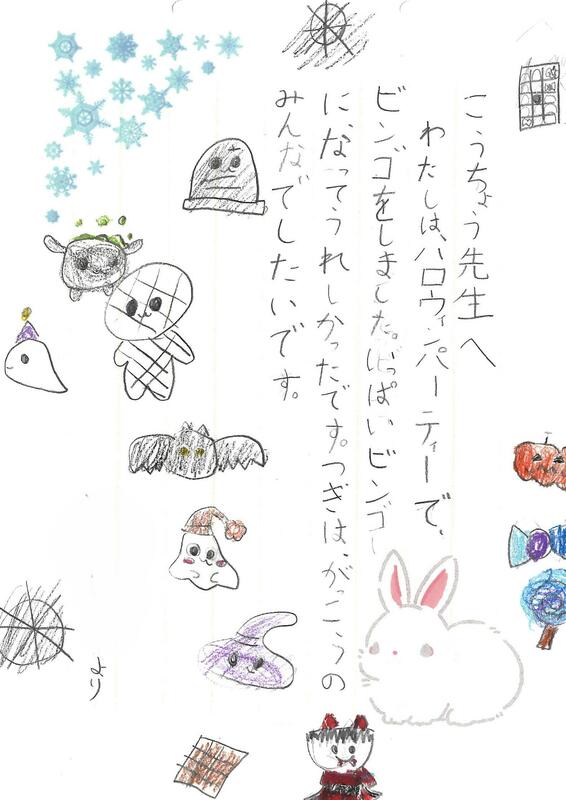 こうちょう先生へ
わたしは、ハロウィンパーティーで、
ビンゴをしました。いっぱいビンゴ
に、なってうれしかったです。つぎは、がっこうの
みんなでしたいです。
より